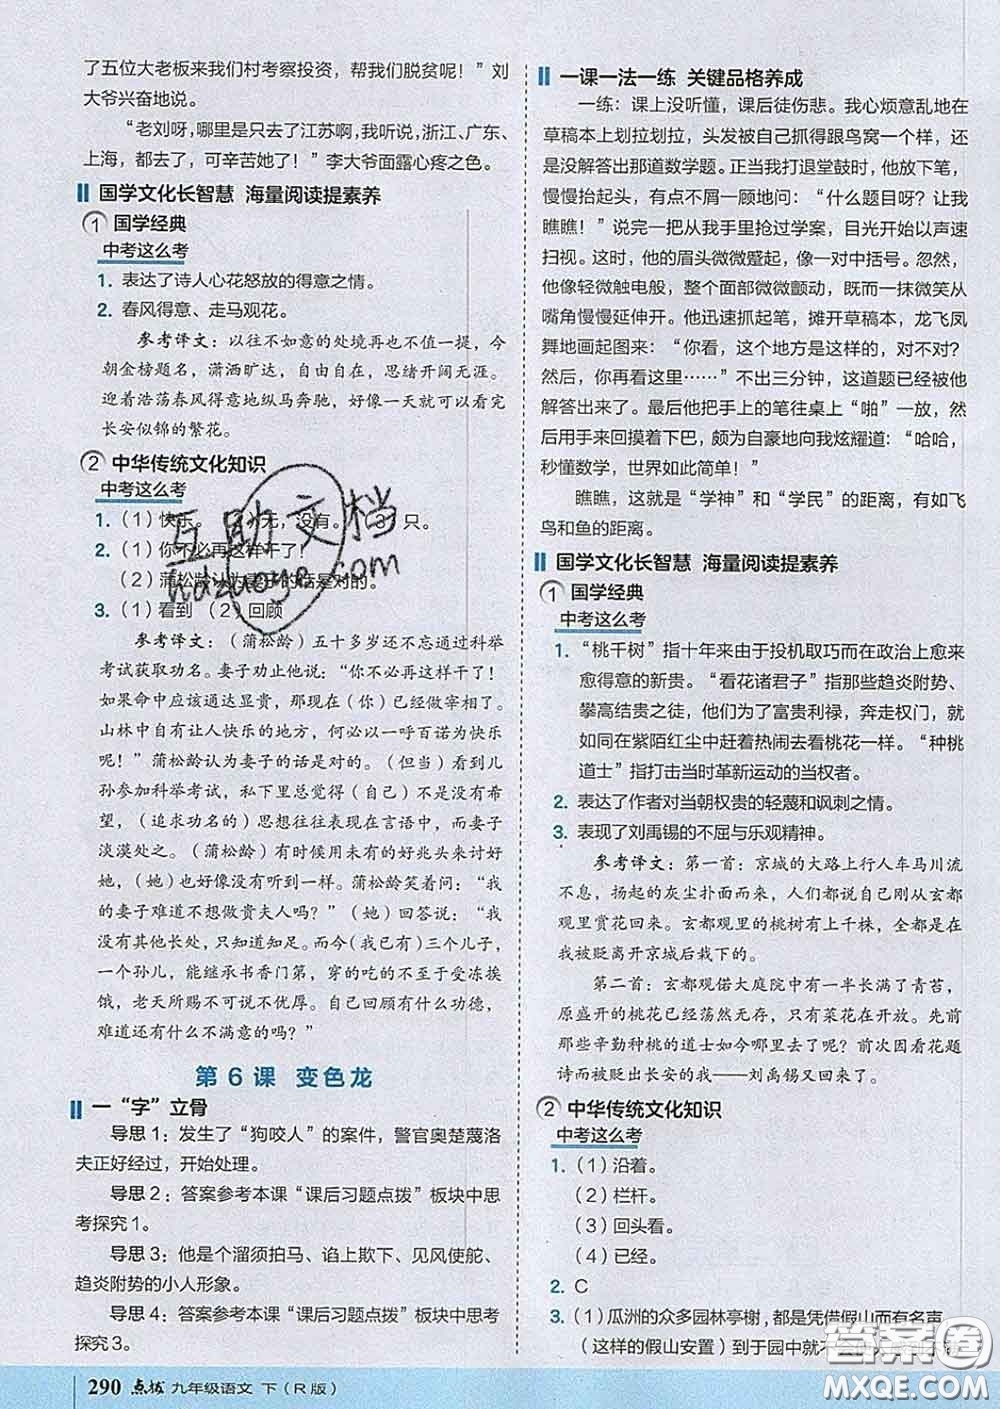 了五位大老板来我们村考察投资，帮我们脱贫呢！”刘
大爷兴奋地说。
“老刘呀，哪里是只去了江苏啊，我听说，浙江、广东、
上海，都去了，可辛苦她了！”李大爷面露心疼之色。
国学文化长智慧 海量阅读提素养
1 国学经典
中考这么考
1. 表达了诗人心花怒放的得意之情。
2. 春风得意、走马观花。
参考译文：以往不如意的处境再也不值一提，今
朝金榜题名，潇洒旷达，自由自在，思绪开阔无涯。
迎着浩荡春风得意地纵马奔驰，好像一天就可以看完
长安似锦的繁花。
2 中华传统文化知识
中考这么考
1.（1）快乐。 无，没有。（3）只。
2.（1）你不必再这样干了！
（2）蒲松龄认为妻子的话是对的。
3.（1）看到 （2）回顾
参考译文：（蒲松龄）五十多岁还不忘通过科举
考试获取功名。妻子劝止他说：“你不必再这样干了！
如果命中应该通达显贵，那现在（你）已经做宰相了。
山林中自有让人快乐的地方，何必以一呼百诺为快乐
呢！”蒲松龄认为妻子的话是对的。（但当）看到儿
孙参加科举考试，私下里总觉得（自己）不是没有希
望，（追求功名的）思想往往表现在言语中，而妻子
淡漠处之。（蒲松龄）有时候用未有的好兆头来讨好
她，（她）也好像没有听到一样。蒲松龄笑着问：“我
的妻子难道不想做贵夫人吗？”（她）回答说：“我
没有其他长处，只知道知足。而今（我已有）三个儿子，
一个孙儿，能继承书香门第，穿的吃的不至于受冻挨
饿，老天所赐不可说不优厚。自己回顾有什么功德，
难道还有什么不满意的吗？”
第 6 课 变色龙
一“字”立骨
导思 1：发生了“狗咬人”的案件，警官奥楚蔑洛
夫正好经过，开始处理。
导思 2：答案参考本课“课后习题点拨”板块中思
考探究 1。
导思 3：他是个溜须拍马、谄上欺下、见风使舵、
趋炎附势的小人形象。
导思 4：答案参考本课“课后习题点拨”板块中思考
探究 3。
290 点拨 九年级语文 下（R 版）
一课一法一练 关键品格养成
一练：课上没听懂，课后徒伤悲。我心烦意乱地在
草稿本上划拉划拉，头发被自己抓得跟鸟窝一个样，还
是没解答出那道数学题。正当我打退堂鼓时，他放下笔，
慢慢抬起头，有点不屑一顾地问：“什么题目呀？让我
瞧瞧！”说完一把从我手里抢过学案，目光开始以声速
扫视。这时，他的眉头微微蹙起，像一对中括号。忽然，
他像轻微触电般，整个面部微微颤动，既而一抹微笑从
嘴角慢慢延伸开。他迅速抓起笔，摊开草稿本，龙飞凤
舞地画起图来：“你看，这个地方是这样的，对不对？
然后，你再看这里……”不出三分钟，这道题已经被他
解答出来了。最后他把手上的笔往桌上“啪”一放，然
后用手来回摸着下巴，颇为自豪地向我炫耀道：“哈哈，
秒懂数学，世界如此简单！”
瞧瞧，这就是“学神”和“学民”的距离，有如飞
鸟和鱼的距离。
国学文化长智慧 海量阅读提素养
1 国学经典
中考这么考
1.“桃千树”指十年来由于投机取巧而在政治上愈来
愈得意的新贵。“看花诸君子”指那些趋炎附势、
攀高结贵之徒，他们为了富贵利禄，奔走权门，就
如同在紫陌红尘中赶着热闹去看桃花一样。“种桃
道士”指打击当时革新运动的当权者。
2. 表达了作者对当朝权贵的轻蔑和讽刺之情。
3. 表现了刘禹锡的不屈与乐观精神。
参考译文：第一首：京城的大路上行人车马川流
不息，扬起的灰尘扑面而来，人们都说自己刚从玄都
观里赏花回来。玄都观里的桃树有上千株，全都是在
我被贬离开京城后栽下的。
第二首：玄都观偌大庭院中有一半长满了青苔，
原盛开的桃花已经荡然无存，只有菜花在开放。先前
那些辛勤种桃的道士如今哪里去了？前次因看花题
诗而被贬出长安的我——刘禹锡又回来了。
2 中华传统文化知识
中考这么考
1.（1）沿着。
（2）栏杆。
（3）回头看。
（4）已经。
2. C
3.（1）瓜洲的众多园林亭榭，都是凭借假山而有名声，
（这样的假山安置）到于园中就
互助文档
hdzuoye.com
答案圈
MXQE.COM